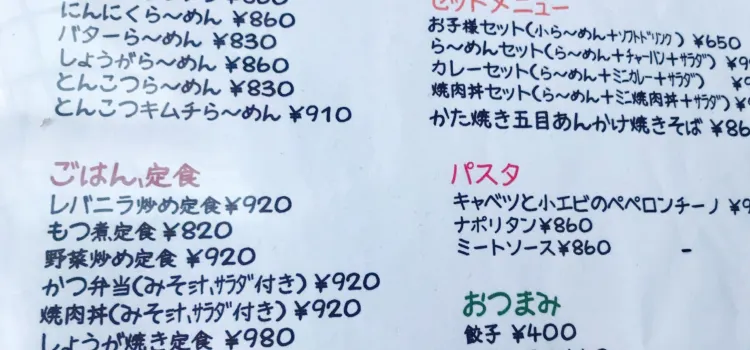 にんにくら〜めん ¥860
バターら〜めん ¥830
しょうがら〜めん ¥860
とんこつら〜めん ¥830
とんこつキムチら〜めん ¥910
ごはん、定食
レバニラ炒め定食 ¥920
もつ煮定食 ¥820
野菜炒め定食 ¥920
かつ弁当(みそ汁、サラダ付き) ¥920
焼肉丼(みそ汁、サラダ付き) ¥920
しょうが焼き定食 ¥980
セットメニュー
お子様セット(小ら〜めん+ソフトドリンク) ¥650
ら〜めんセット(ら〜めん+チャーハン+サラダ)
カレーセット(ら〜めん+ミニカレー+サラダ)
焼肉丼セット(ら〜めん+ミニ焼肉丼+サラダ)
かた焼き五目あんかけ焼きそば
パスタ
キャベツと小エビのペペロンチーノ
ナポリタン¥860
ミートソース¥860
おつまみ
餃子 ¥400